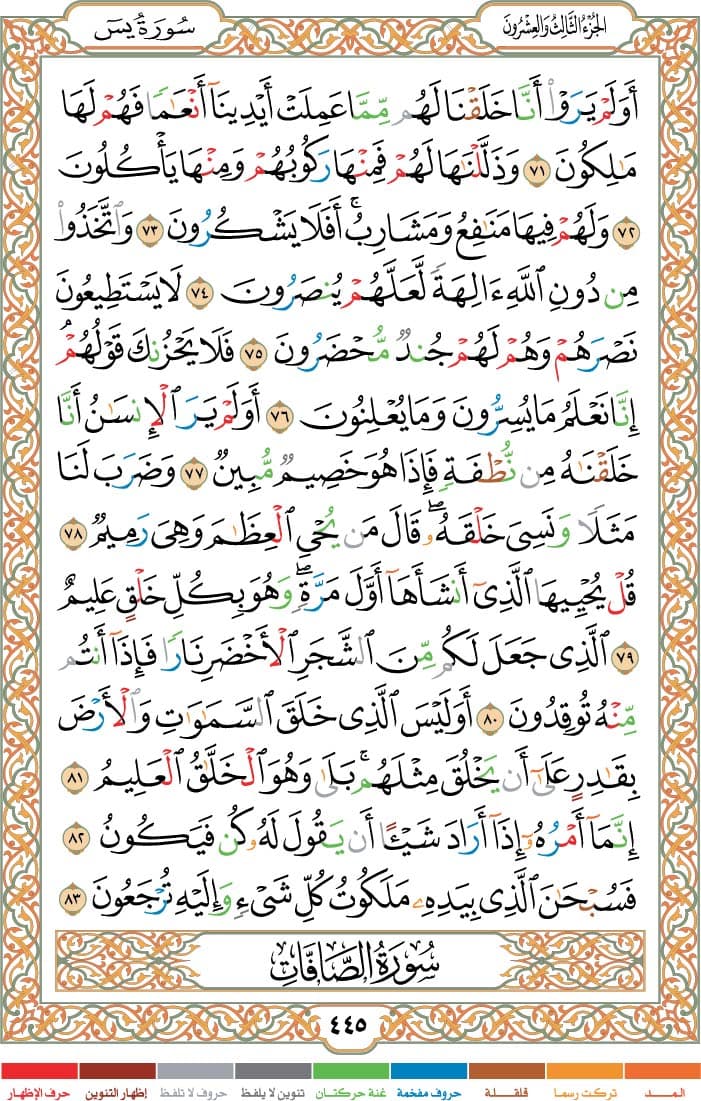 الجزء الثالث والعشرون
سورة يس
أَوَلَمْ يَرَوْا۟ أَنَّا خَلَقْنَا لَهُم مِّمَّا عَمِلَتْ أَيْدِينَآ أَنْعَـٰمًا فَهُمْ لَهَا
مَـٰلِكُونَ ٧١ وَذَلَّلْنَـٰهَا لَهُمْ فَمِنْهَا رَكُوبُهُمْ وَمِنْهَا يَأْكُلُونَ
٧٢ وَلَهُمْ فِيهَا مَنَـٰفِعُ وَمَشَارِبُ ۚ أَفَلَا يَشْكُرُونَ ٧٣ وَٱتَّخَذُوا۟
مِن دُونِ ٱللَّهِ ءَالِهَةً لَّعَلَّهُمْ يُنصَرُونَ ٧٤ لَا يَسْتَطِيعُونَ
نَصْرَهُمْ وَهُمْ لَهُمْ جُندٌ مُّحْضَرُونَ ٧٥ فَلَا يَحْزُنكَ قَوْلُهُمْ ۘ
إِنَّا نَعْلَمُ مَا يُسِرُّونَ وَمَا يُعْلِنُونَ ٧٦ أَوَلَمْ يَرَ ٱلْإِنسَـٰنُ أَنَّا
خَلَقْنَـٰهُ مِن نُّطْفَةٍ فَإِذَا هُوَ خَصِيمٌ مُّبِينٌ ٧٧ وَضَرَبَ لَنَا
مَثَلًا وَنَسِىَ خَلْقَهُۥ ۖ قَالَ مَن يُحْىِ ٱلْعِظَـٰمَ وَهِىَ رَمِيمٌ ٧٨
قُلْ يُحْيِيهَا ٱلَّذِىٓ أَنشَأَهَآ أَوَّلَ مَرَّةٍ ۖ وَهُوَ بِكُلِّ خَلْقٍ عَلِيمٌ
٧٩ ٱلَّذِى جَعَلَ لَكُم مِّنَ ٱلشَّجَرِ ٱلْأَخْضَرِ نَارًا فَإِذَآ أَنتُم
مِّنْهُ تُوقِدُونَ ٨٠ أَوَلَيْسَ ٱلَّذِى خَلَقَ ٱلسَّمَـٰوَٰتِ وَٱلْأَرْضَ
بِقَـٰدِرٍ عَلَىٰٓ أَن يَخْلُقَ مِثْلَهُم ۚ بَلَىٰ وَهُوَ ٱلْخَلَّـٰقُ ٱلْعَلِيمُ ٨١
إِنَّمَآ أَمْرُهُۥٓ إِذَآ أَرَادَ شَيْـًٔا أَن يَقُولَ لَهُۥ كُن فَيَكُونُ ٨٢
فَسُبْحَـٰنَ ٱلَّذِى بِيَدِهِۦ مَلَكُوتُ كُلِّ شَىْءٍ وَإِلَيْهِ تُرْجَعُونَ ٨٣
سورة الصافات
٤٤٥
المــد تركت رسما قلقلة حروف مفخمة غنة حركتان تنوين لا يلفظ حروف لا تلفظ إظهار التنوين حرف الإظهار